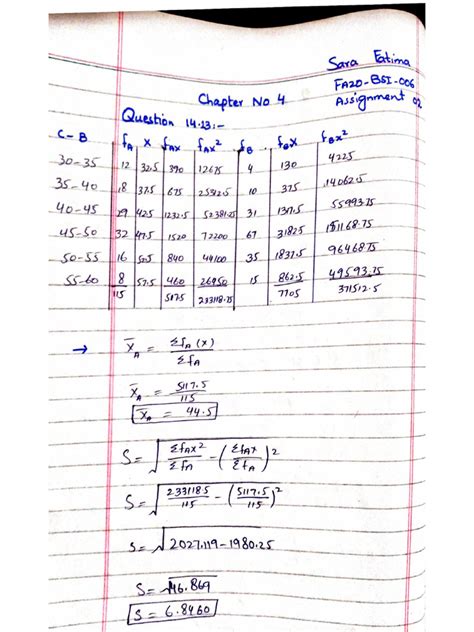 Sara Fatima
FA20-BSI-006
Chapter No 4
Assignment 02
Question 14.13:-
C-B fA X fAX fAX² fB fBX fBX²
30-35 12 32.5 390 12675 4 130 4225
35-40 18 37.5 675 25312.5 10 375 14062.5
40-45 29 42.5 1232.5 52381.25 31 1317.5 55993.75
45-50 32 47.5 1520 72200 67 3182.5 151168.75
50-55 16 52.5 840 44100 35 1837.5 96468.75
55-60 8 57.5 460 26450 15 862.5 49593.75
115 233118.75 7705 371512.5
→ X̄A = ΣfA(x) / ΣfA
X̄A = 5117.5 / 115
X̄A = 44.5
S = √ ΣfAx² / ΣfA - (ΣfAx / ΣfA)²
S = √ 233118.5 / 115 - (5117.5 / 115)²
S = √ 2027.119-1980.25
S = √46.869
S = 6.8460